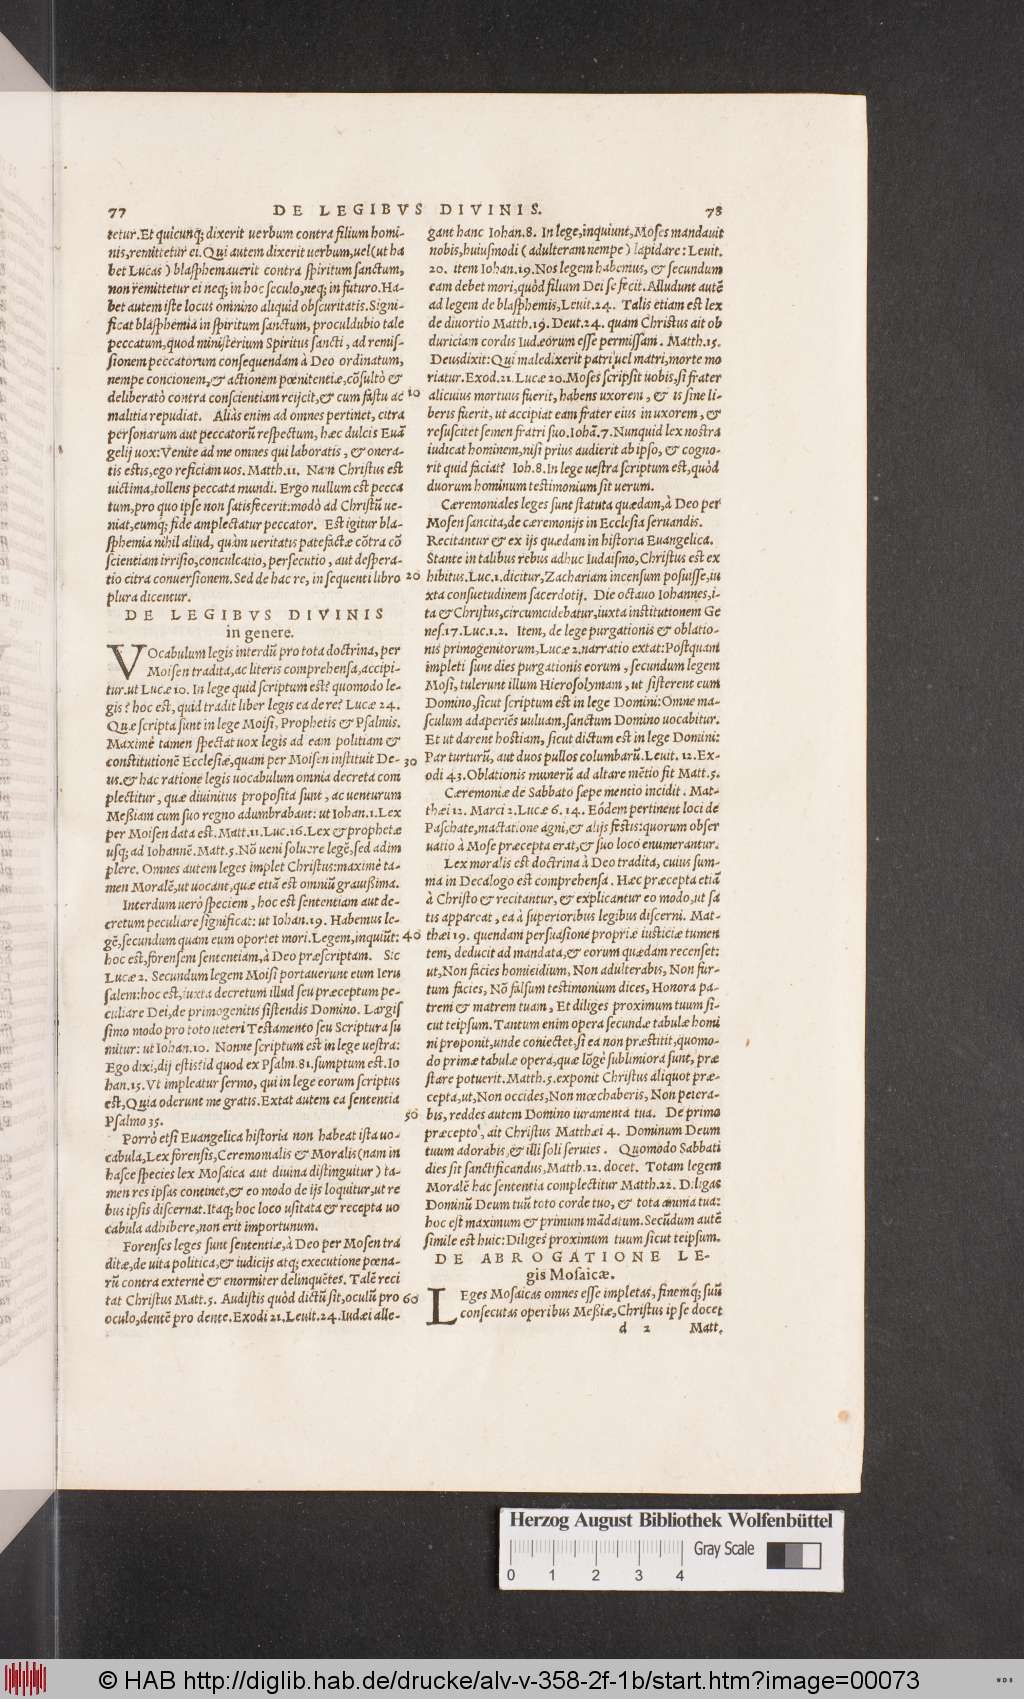 77 DE LEGIBVS DIVINIS. 78
tetur. Et quicunq; dixerit uerbum contra filium homi-
nis, remittetur ei. Qui autem dixerit uerbum, uel (ut ha
bet Lucas) blasphemauerit contra spiritum sanctum,
non remittetur ei neq; in hoc seculo, neq; in futuro. Ha-
bet autem iste locus omnino aliquid obscuritatis. Signi-
ficat blasphemia in spiritum sanctum, proculdubio tale
peccatum, quod ministerium Spiritus sancti, ad remis-
sionem peccatorum consequendam à Deo ordinatum,
nempe concionem, & actionem pœnitentiæ, cōsultò &
deliberatò contra conscientiam reijcit, & cum fastu ac 10
malitia repudiat. Aliàs enim ad omnes pertinet, citra
personarum aut peccatorū respectum, hæc dulcis Euā
gelij uox: Venite ad me omnes qui laboratis, & onera-
tis estis, ego reficiam uos. Matth. 11. Nam Christus est
uictima, tollens peccata mundi. Ergo nullum est pecca
tum, pro quo ipse non satisfecerit: modò ad Christū ue-
niat, eumq; fide amplectatur peccator. Est igitur bla-
sphemia nihil aliud, quàm ueritatis patefactæ cōtra cō
scientiam irrisio, conculcatio, persecutio, aut despera-
tio citra conuersionem. Sed de hac re, in sequenti libro 20
plura dicentur.
DE LEGIBVS DIVINIS
in genere.
VOcabulum legis interdū pro tota doctrina, per
Moisen tradita, ac literis comprehensa, accipi-
tur. ut Lucæ 10. In lege quid scriptum est? quomodo le-
gis? hoc est, quid tradit liber legis ea de re? Lucæ 24.
Quæ scripta sunt in lege Moisi, Prophetis & Psalmis.
Maximè tamen spectat uox legis ad eam politiam &
constitutionē Ecclesiæ, quam per Moisen instituit De- 30
us. & hac ratione legis uocabulum omnia decreta com
plectitur, quæ diuinitus proposita sunt, ac uenturum
Meßiam cum suo regno adumbrabant: ut Iohan. 1. Lex
per Moisen data est. Matt. 11. Luc. 16. Lex & prophetæ
usq; ad Iohannē. Matt. 5. Nō ueni soluere legē, sed adim
plere. Omnes autem leges implet Christus: maximè ta-
men Moralē, ut uocant, quæ etiā est omniū grauißima.
Interdum uerò speciem, hoc est sententiam aut de-
cretum peculiare significat: ut Iohan. 19. Habemus le-
gē, secundum quam eum oportet mori. Legem, inquiūt: 40
hoc est, forensem sententiam, à Deo præscriptam. Sic
Lucæ 2. Secundum legem Moisi portauerunt eum Ieru
salem: hoc est, iuxta decretum illud seu præceptum pe-
culiare Dei, de primogenitis sistendis Domino. Largis
simo modo pro toto ueteri Testamento seu Scriptura su
mitur: ut Iohan. 10. Nonne scriptum est in lege uestra:
Ego dixi, dij estis? id quod ex Psalm. 81. sumptum est. Io
han. 15. Vt impleatur sermo, qui in lege eorum scriptus
est, Quia oderunt me gratis. Extat autem ea sententia
Psalmo 35. 50
Porrò etsi Euangelica historia non habeat ista uo-
cabula, Lex forensis, Ceremonialis & Moralis (nam in
hasce species lex Mosaica aut diuina distinguitur) ta-
men res ipsas continet, & eo modo de ijs loquitur, ut re
bus ipsis discernat. Itaq; hoc loco usitata & recepta uo
cabula adhibere, non erit importunum.
Forenses leges sunt sententiæ, à Deo per Mosen tra
ditæ, de uita politica, & iudicijs atq; executione pœna-
rū contra externè & enormiter delinquētes. Talē reci
tat Christus Matt. 5. Audistis quòd dictū sit, oculū pro 60
oculo, dentē pro dente. Exodi 21. Leuit. 24. Iudæi alle-
gant hanc Iohan. 8. In lege, inquiunt, Moses mandauit
nobis, huiusmodi (adulteram nempe) lapidare: Leuit.
20. item Iohan. 19. Nos legem habemus, & secundum
eam debet mori, quòd filium Dei se fecit. Alludunt autē
ad legem de blasphemis, Leuit. 24. Talis etiam est lex
de diuortio Matth. 19. Deut. 24. quam Christus ait ob
duriciam cordis Iudæorum esse permissam. Matth. 15.
Deus dixit: Qui maledixerit patri uel matri, morte mo
riatur. Exod. 21. Lucæ 20. Moses scripsit uobis, si frater
alicuius mortuus fuerit, habens uxorem, & is sine li-
beris fuerit, ut accipiat eam frater eius in uxorem, &
resuscitet semen fratri suo. Iohā. 7. Nunquid lex nostra
iudicat hominem, nisi prius audierit ab ipso, & cogno-
rit quid faciat? Ioh. 8. In lege uestra scriptum est, quòd
duorum hominum testimonium sit uerum.
Cæremoniales leges sunt statuta quædam, à Deo per
Mosen sancita, de cæremonijs in Ecclesia seruandis.
Recitantur & ex ijs quædam in historia Euangelica.
Stante in talibus rebus adhuc Iudaismo, Christus est ex
hibitus. Luc. 1. dicitur, Zachariam incensum posuisse, iu
xta consuetudinem sacerdotij. Die octauo Iohannes, i-
ta & Christus, circumcidebatur, iuxta institutionem Ge
nes. 17. Luc. 1. 2. Item, de lege purgationis & oblatio-
nis primogenitorum, Lucæ 2. narratio extat: Postquam
impleti sunt dies purgationis eorum, secundum legem
Mosi, tulerunt illum Hierosolymam, ut sisterent eum
Domino, sicut scriptum est in lege Domini: Omne ma-
sculum adaperiēs uuluam, sanctum Domino uocabitur.
Et ut darent hostiam, sicut dictum est in lege Domini:
Par turturū, aut duos pullos columbarū. Leuit. 12. Ex-
odi 43. Oblationis munerū ad altare mētio fit Matt. 5.
Cæremoniæ de Sabbato sæpe mentio incidit. Mat-
thæi 12. Marci 2. Lucæ 6. 14. Eòdem pertinent loci de
Paschate, mactatione agni, & alijs festis: quorum obser
uatio à Mose præcepta erat, & suo loco enumerantur.
Lex moralis est doctrina à Deo tradita, cuius sum-
ma in Decalogo est comprehensa. Hæc præcepta etiā
à Christo & recitantur, & explicantur eo modo, ut sa
tis appareat, ea à superioribus legibus discerni. Mat-
thæi 19. quendam persuasione propriæ iusticiæ tumen
tem, deducit ad mandata, & eorum quædam recenset:
ut, Non facies homicidium, Non adulterabis, Non fur-
tum facies, Nō falsum testimonium dices, Honora pa-
trem & matrem tuam, Et diliges proximum tuum si-
cut teipsum. Tantum enim opera secundæ tabulæ homi
ni proponit, unde coniectet, si ea non præstitit, quomo-
do primæ tabulæ opera, quæ lōgè sublimiora sunt, præ
stare potuerit. Matth. 5. exponit Christus aliquot præ-
cepta, ut, Non occides, Non mœchaberis, Non peiera-
bis, reddes autem Domino iuramenta tua. De primo
præcepto, ait Christus Matthæi 4. Dominum Deum
tuum adorabis, & illi soli seruies. Quomodo Sabbati
dies sit sanctificandus, Matth. 12. docet. Totam legem
Moralē hac sententia complectitur Matth. 22. Diliges
Dominū Deum tuū toto corde tuo, & tota anima tua:
hoc est maximum & primum mādatum. Secūdum autē
simile est huic: Diliges proximum tuum sicut teipsum.
DE ABROGATIONE LE-
gis Mosaicæ.
LEges Mosaicas omnes esse impletas, finemq; suū
consecutas operibus Meßiæ, Christus ipse docet
d 2 Matt.
Herzog August Bibliothek Wolfenbüttel
0 1 2 3 4 Gray Scale
© HAB http://diglib.hab.de/drucke/alv-v-358-2f-1b/start.htm?image=00073